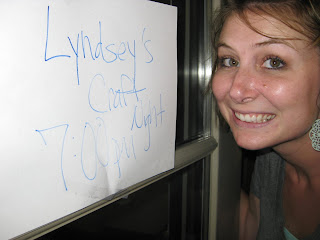 Lyndsey's
Craft
Night
7:00pm